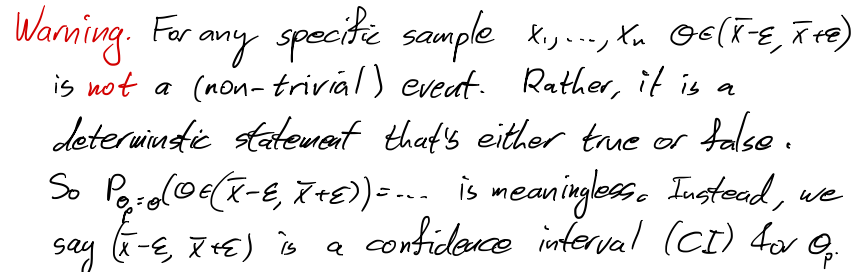 Warning. For any specific sample x₁,..., xₙ θ∈(x̄-ε, x̄+ε)
is not a (non-trivial) event. Rather, it is a
deterministic statement that's either true or false.
So P_{θₚ=θ}(θ∈(x̄-ε, x̄+ε))=... is meaningless. Instead, we
say (x̄-ε, x̄+ε) is a confidence interval (CI) for θₚ.